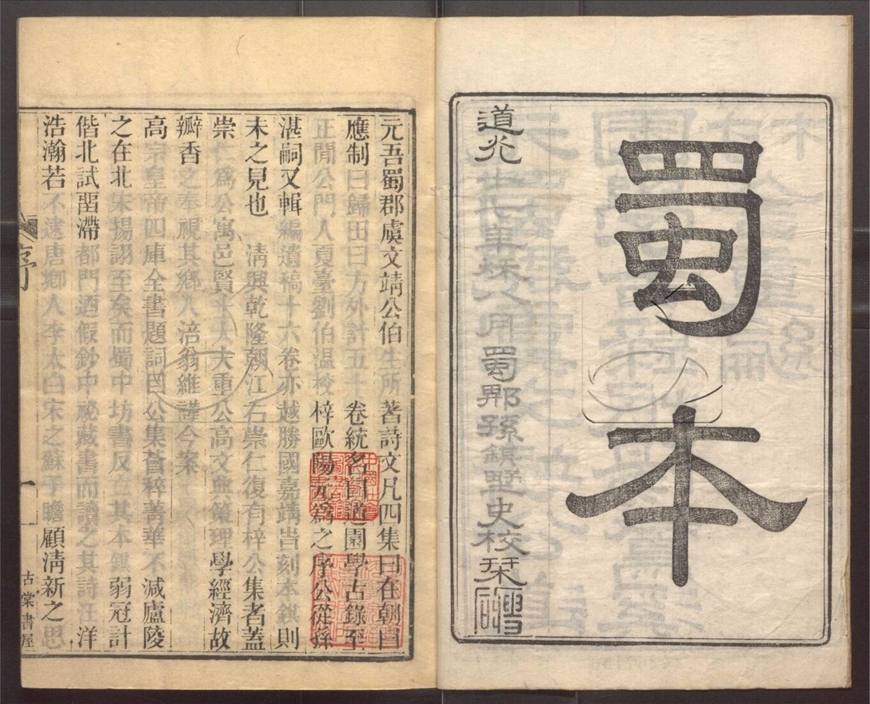 蜀本
道光
八月 蜀郡孫錤墅史校栞
元吾蜀郡虞文靖公伯生所著詩文凡四集曰在朝曰
應制曰歸田曰方外計五十卷統名曰道園學古錄至
正閒公門人夏臺劉伯溫校梓歐陽元為之序公從孫
湛嗣又輯編遺稿十六卷亦越勝國嘉靖皆刻本錤則
未之見也 清興乾隆朝江右崇仁復有梓公集者蓋
崇為公寓邑賢士大夫重公高文典策理學經濟故
瓣香之奉視其鄉人涪翁維謹今案
高宗皇帝四庫全書題詞曰公集薈稡菁華不減廬陵
之在北宋揚詡至矣而蜀中坊書反亡其本錤弱冠計
偕北試畱滯都門迺假鈔中祕藏書而讀之其詩汪洋
浩瀚若不逮唐鄉人李太白宋之蘇子瞻顧淸新之思
序
一
古棠書屋